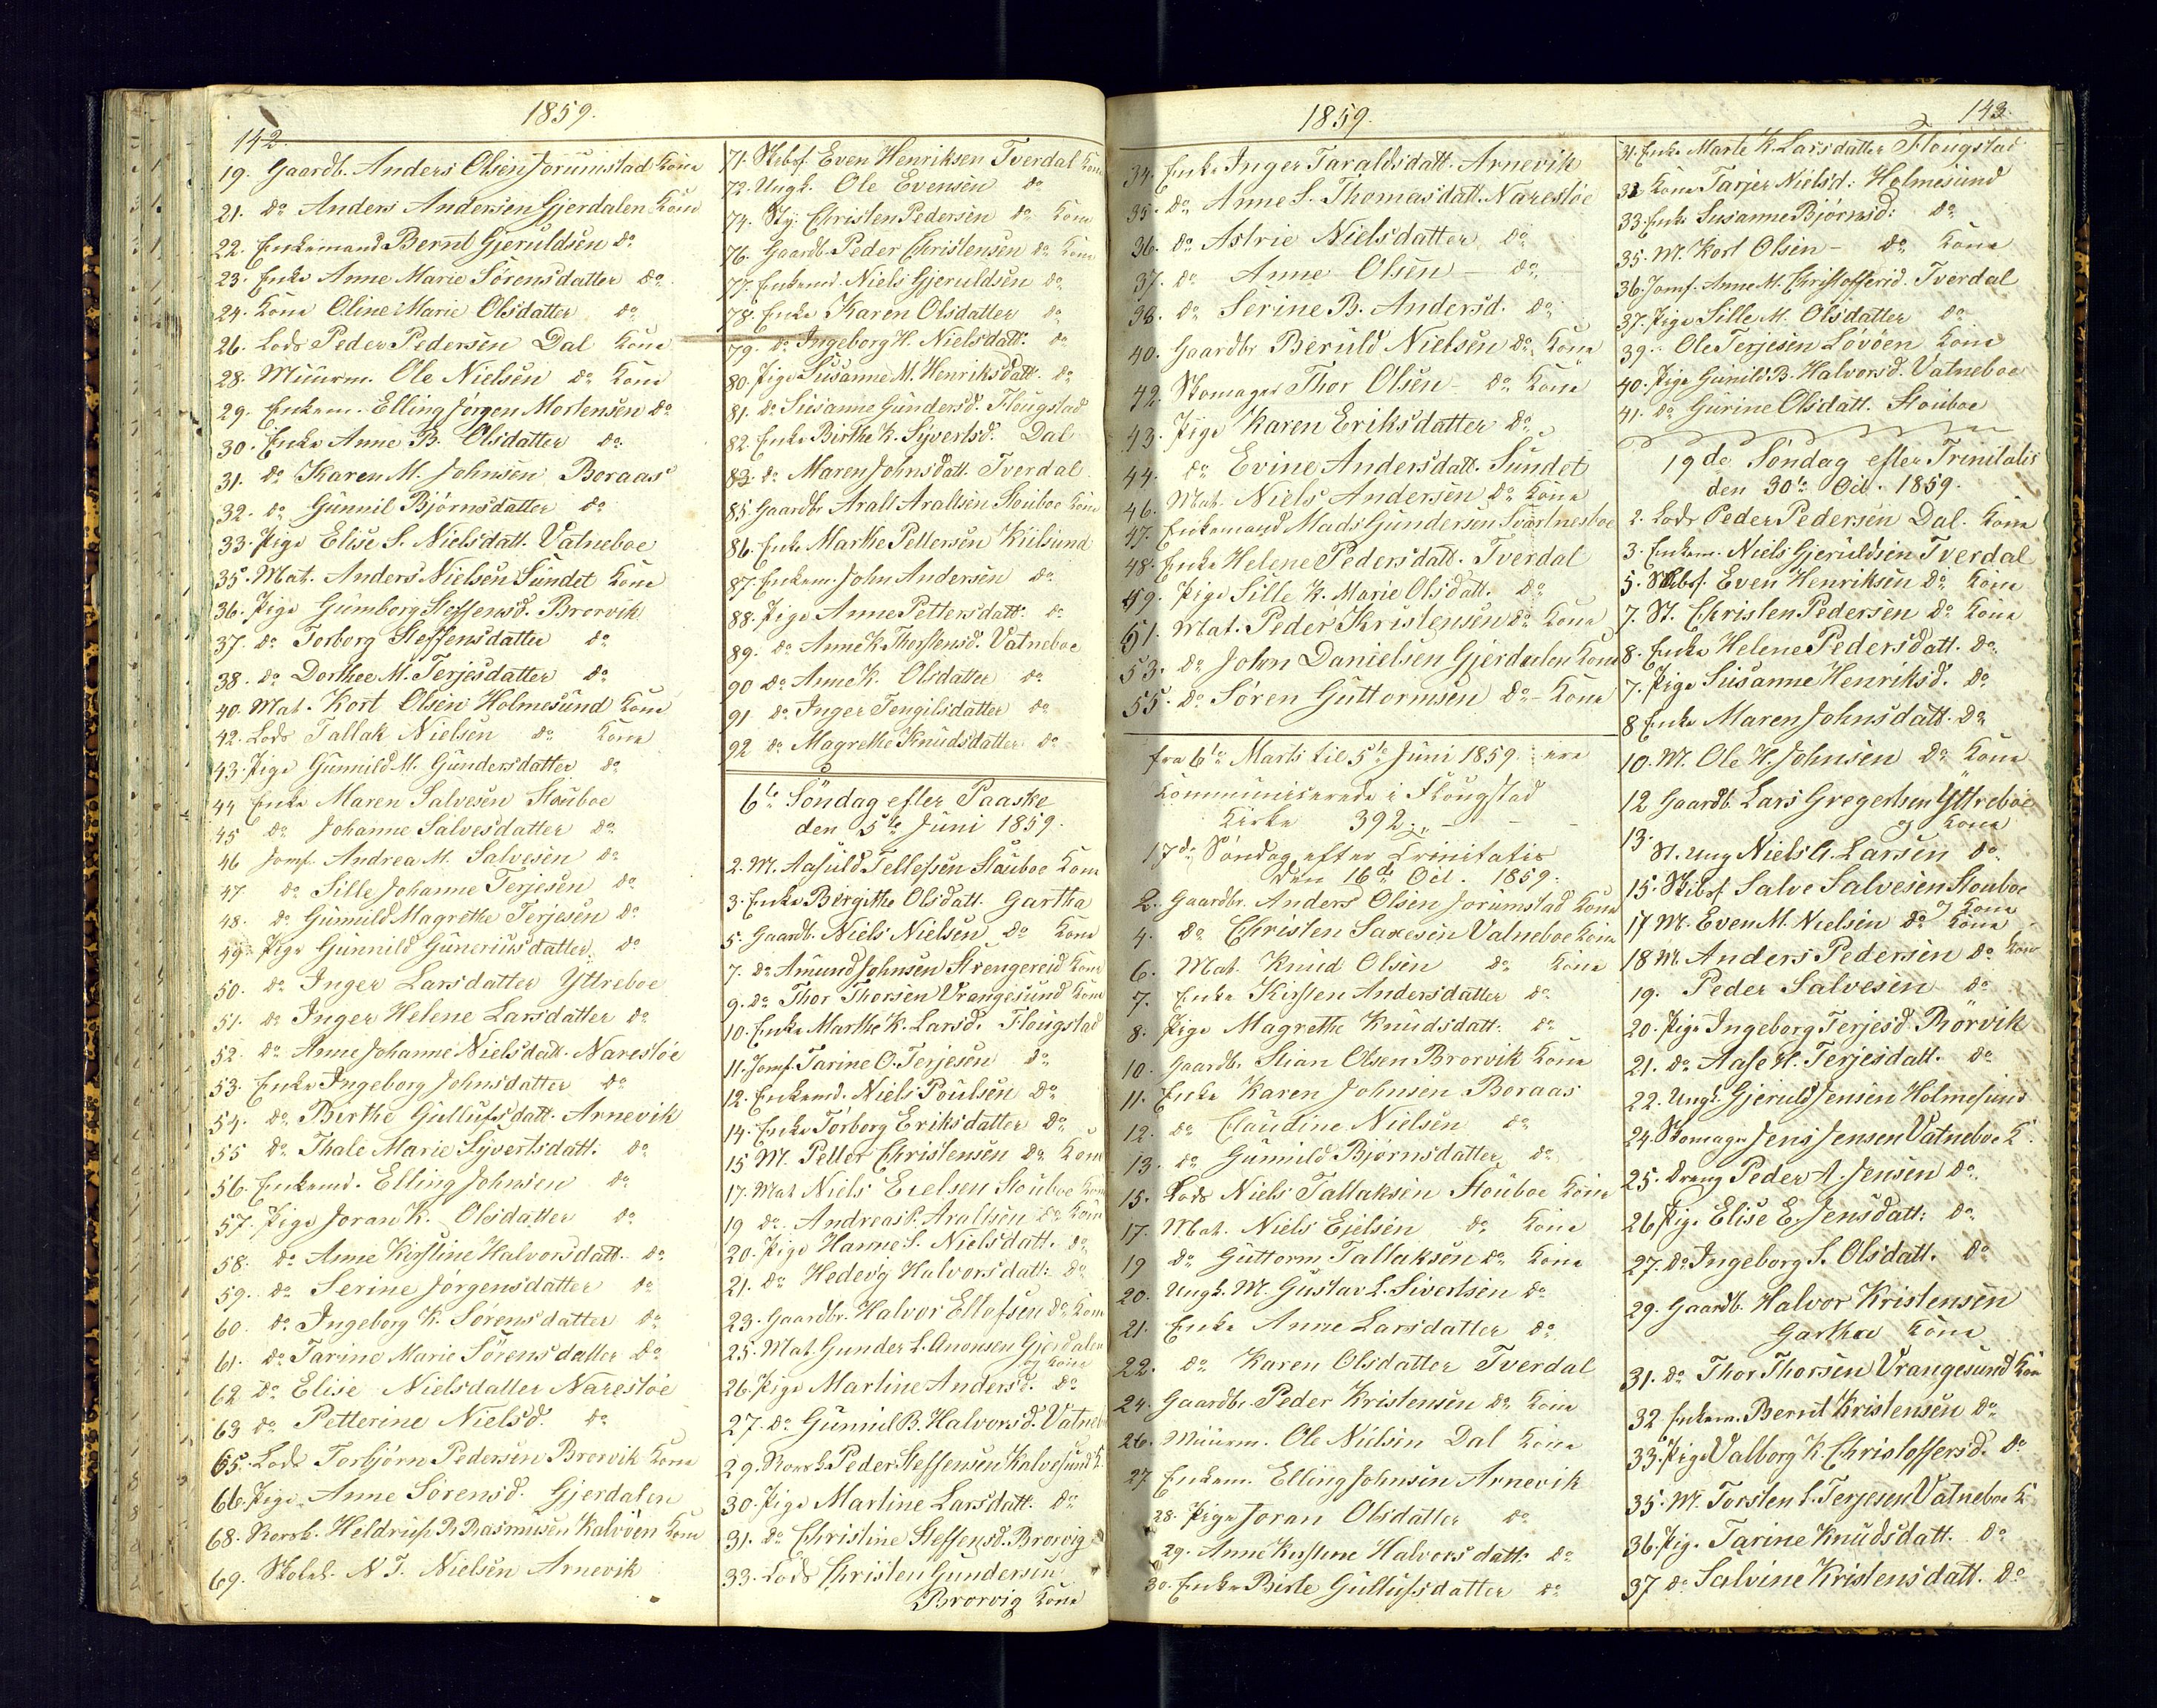 142.
1859.
19. Gaardb. Anders Olsen Jorumstad Kone
21. do Anders Andersen Gjerdalen Kone
22. Enkemand Bernt Gjeruldsen do
23. Enke Anne Marie Sörensdatter do
24. Kone Oline Marie Olsdatter do
26. Lods Peder Pedersen Dal Kone
28. Muurm. Ole Nielsen do Kone
29. Enkem. Elling Jörgen Mortensen do
30. Enke Anne B. Olsdatter do
31. do Karen M. Johnsen Boraas
32. do Gunnil Bjørnsdatter do
33. Pige Elise S. Nielsdatt. Vatneboe
35. Mat. Anders Nielsen Sundet Kone
36. Pige Gumborg Steffensd. Brorvik
37. do Torborg Steffensdatter do
38. do Dorthee M. Terjesdatter do
40. Mat. Kort Olsen Holmesund Kone
42. Lods Tallak Nielsen do Kone
43. Pige Gunnild M. Gundersdatter do
44 Enke Maren Salvesen Stouboe
45 do Johanne Salvesdatter do
46 Jomf. Andrea M. Salvesen do
47. do Sille Johanne Terjesen do
48. do Gunnild Magrethe Terjesen do
49. Pige Gunnild Guneriusdatter do
50. do Inger Larsdatter Yttreboe
51. do Inger Helene Larsdatter do
52. do Anne Johanne Nielsdatt. Narestöe
53. Enke Ingeborg Johnsdatter do
54. do Birthe Gullufsdatt. Arnevik
55 do Thale Marie Syvertsdatt. do
56. Enkemd. Elling Johnsen do
57. Pige Joran K. Olsdatter do
58. do Anne Kirstine Halvorsdatt. do
59. do Serine Jørgensdatter do
60. do Ingeborg K. Sørensdatter do
61. do Tarine Marie Sörensdatter do
62 do Elise Nielsdatter Narestöe
63 do Petterine Nielsd. do
65. Lods Torbjørn Pedersen Brorvik Kone
66. Pige Anne Sörensd. Gjerdalen
68. Rorsk. Heldrich R Rasmusen Kalvöen Kone
69. Skolel. N T. Nielsen Arnevik
71. Skebsf. Even Henriksen Tverdal Kone
72. Ungk. Ole Evensen do
74. Sty. Christen Pedersen do Kone
76. Gaardb. Peder Christensen do Kone
77. Enkemd. Niels Gjeruldsen do
78. Enke Karen Olsdatter do
79. do Ingeborg H. Nielsdatt. do
80. Pige Susanne M. Henriksdatt. do
81. do Susanne Gundersd. Flougstad
82 Enke Birthe K. Syvertsd. Dal
83. do Maren Johnsdatt. Tverdal
85. Gaardbr Aralt Araltsen Stouboe Kone
86. Enke Marthe Pettersen Kiilsund
87. Enkem. John Andersen do
88. Pige Anne Pettersdatt. do
89. do Anne K. Thorstensd. Vatneboe
90 do Anne K. Olsdatter do
91 do Inger Tengilsdatter do
92 do Magrethe Knudsdatter do
6te Söndag efter Paaske
den 5te Juni 1859.
2. M. Aasuld Tellefsen Stauboe Kone
3. Enke Birgithe Olsdatt. Gartha
5. Gaardb. Niels Nielsen do Kone
7. do Amund Johnsen Strengereid Kone
9. do Thor Thorsen Vrangesund Kone
10. Enke Marthe K. Larsd. Flougstad
11. Jomf. Tarine O. Terjesen do
12. Enkemd. Niels Poulsen do
14. Enke Törborg Eriksdatter do
15 M. Petter Christensen do Kone
17. Mat Niels Eielsen Stouboe Kone
19 do Andreas P. Araltsen do Kone
20. Pige Hanne S. Nielsdatt. do
21. do Hedevig Halvorsdatt. do
23. Gaardbr. Halvor Ellefsen do Kone
25. Mat. Gunder L. Anonsen Gjerdalen
og Kone
26. Pige Martine Andersd. do
27. do Gunnil B. Halvorsd. Vatneb
29. Rorsk. Peder Steffensen Kalvesund K.
30. Pige Martine Larsdatt. do
31. do Christine Steffensd. Brorvig
33. Lods Christen Gundersen
Brorvig Kone
1859.
143.
34. Enke Inger Taraldsdatt. Arnevik
35. do Anne S. Thomasdatt. Narestöe
36. do Astrie Nielsdatter do
37. do Anne Olsen - do
38. do Serine B. Andersd. do
40. Gaardbr Beruld Nielsen do Kone
42. Skomager Thor Olsen - do Kone
43. Pige Karen Eriksdatter do
44. do Evine Andersdatt. Sundet
46. Mat. Niels Andersen do Kone
47. Enkemand Mads Gundersen Svartnesboe
48. Enke Helene Pedersdatt. Tverdal
49. Pige Sille K. Marie Olsdatt. do
51. Mat. Peder Kristensen do Kone
53. do John Danielsen Gjerdalen Kone
55. do Sören Guttormsen do - Kone
fra 6te Marts til 5te Juni 1859 ere
Kommunicerede i Flougstad
Kirke 392.
17de Søndag efter Trinitatis
den 16de Oct. 1859.
2. Gaardbr. Anders Olsen Jorumstad Kone
4. do Christen Saxesen Vatneboe Kone
6. Mat. Knud Olsen do Kone
7. Enke Kirsten Andersdatter do
8. Pige Magrethe Knudsdatt. do
10. Gaardb. Stian Olsen Brorvik Kone
11. Enke Karen Johnsen Boraas
12. do Claudine Nielsen do
13. do Gunnild Bjørnsdatter do
15. Lods Niels Tallaksen Stouboe Kone
17. Mat. Niels Eielsen do Kone
19 do Guttorm Tallaksen do Kone
20. Ungk. M. Gustav L. Sivertsen do
21. Enke Anne Larsdatter do
22. do Karen Olsdatter Tverdal
24. Gaardbr. Peder Kristensen do Kone
26. Muurm. Ole Nielsen Dal Kone
27 Enkem. Elling Johnsen Arnevik
28. Pige Joran Olsdatter do
29. Anne Kirstine Halvorsdatt. do
30. Enke Birte Gullufsdatter do
31. Enke Marte K. Larsdatter Flougstad
32 Kone Tarjer Nielsd. Holmesund
33. Enke Susanne Bjørnsd. do
35. M. Kort Olsen - do Kone
36. Jomf. Anne M. Christoffersd. Tverdal
37. Pige Sille M. Olsdatter do
39. Ole Terjesen Lövöen Kone
40. Pige Gunild B. Halvorsd. Vatneboe
41. do Gurine Olsdatt. Stouboe
19de Söndag efter Trinitatis
den 30te Oct. 1859.
2. Lods Peder Pedersen Dal. Kone
3. Enkem. Niels Gjeruldsen Tverdal
5. Skibsf. Even Henriksen do Kone
7. St. Christen Pedersen do Kone
8. Enke Helene Pedersdatt. do
7. Pige Susanne Henriksd. do
8 Enke Maren Johnsdatt. do
10. M. Ole H. Johnsen do Kone
12 Gaardb. Lars Gregertsen Yttreboe
og Kone
13. St. Ung Niels A. Larsen do
15. Skibsf. Salve Salvesen Stouboe
og Kone
17 M. Even M. Nielsen do Kone
18 M. Anders Pedersen do Kone
19. Peder Salvesen do
20. Pige Ingeborg Terjesd. Rörvik
21. do Aase H. Terjesdatt. do
22. Ungk. Gjeruld Jensen Holmesund
24. Skomager Jens Jensen Vatneboe K.
25. Dreng Peder A. Jensen do
26 Pige Elise E. Jensdatt. do
27. do Ingeborg S. Olsdatt. do
29. Gaardb. Halvor Kristensen
Garthe Kone
31. do Thor Thorsen Vrangesund Kone
32 Enkem. Bernt Kristensen do
33. Pige Valborg K. Christoffersd. do
35. M. Torsten S. Terjesen Vatneboe K
36. Pige Tarine Knudsdatt. do
37 do Salvine Kristensdatt. do